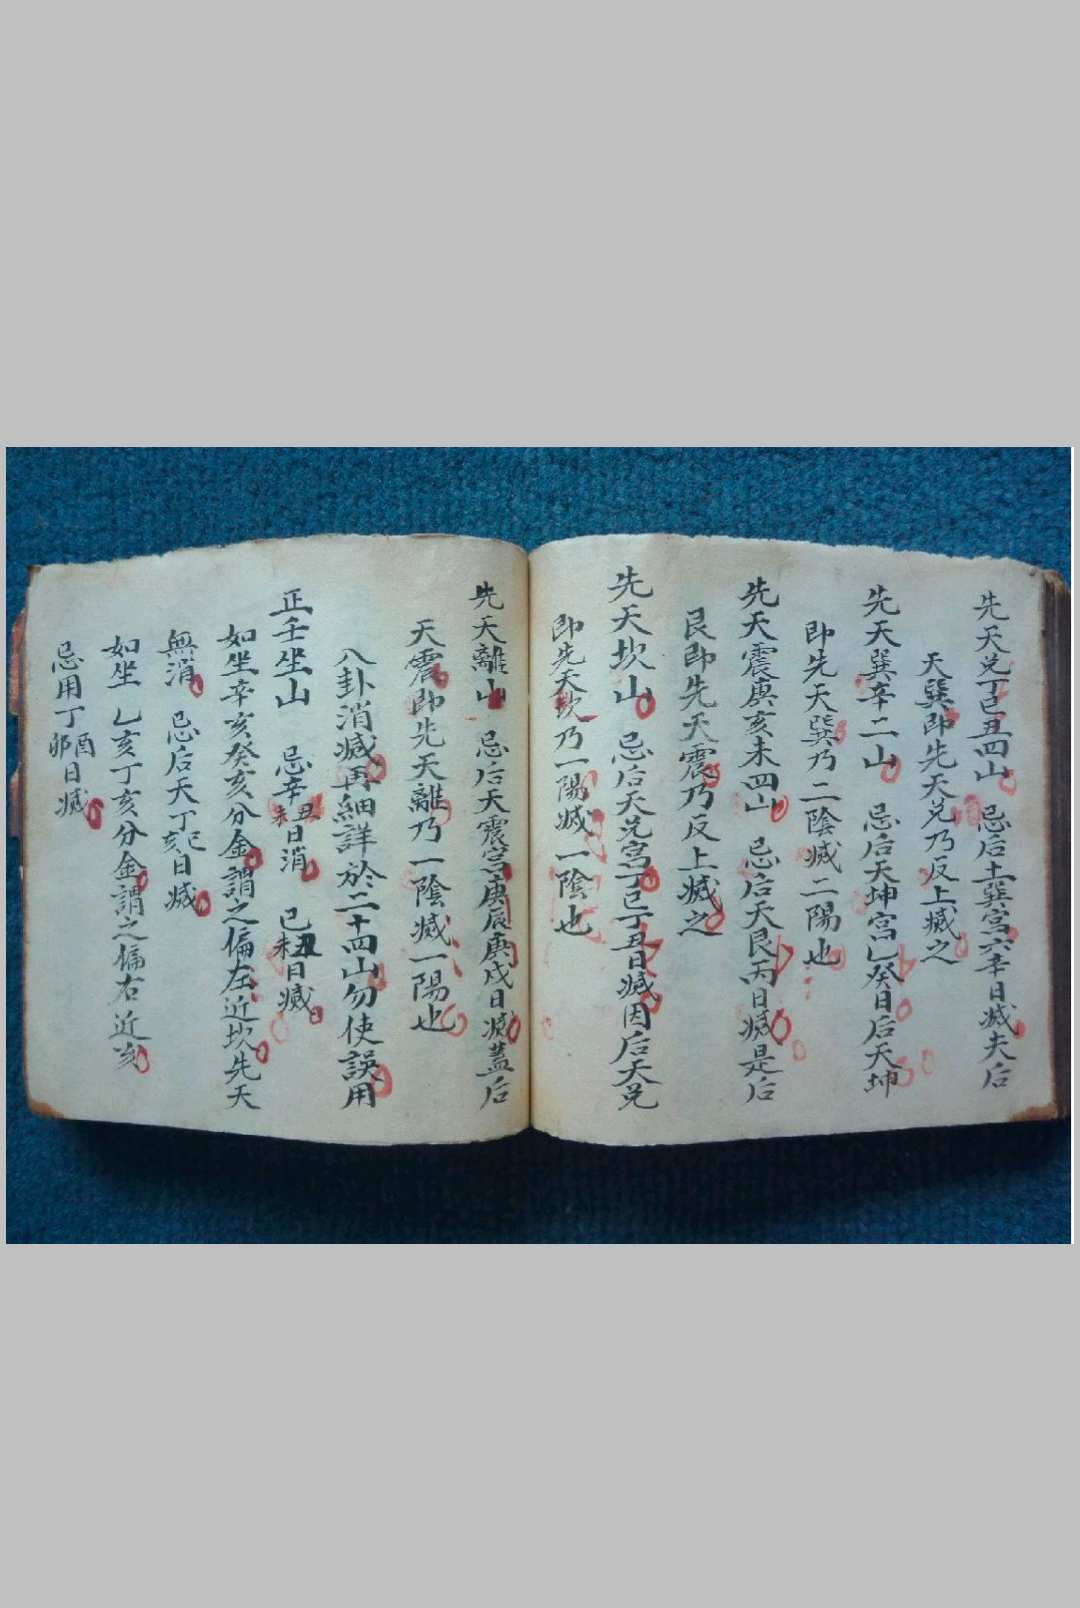 先天兑丁巳丑四山　忌后土巽宮六辛日滅夫后
天巽即先天兑乃反上滅之
先天巽辛二山　忌后天坤宮乙癸日后天坤
即先天巽乃二陰滅二陽也
先天震庚亥未四山　忌后天艮丙日滅是后
艮即先天震乃反上滅之
先天坎山　忌后天兑宮丁巳丁丑日滅因后天兑
即先天坎乃一陽滅一陰也
先天離山　忌后天震宮庚辰庚戌日滅蓋后
天震即先天離乃一陰滅一陽也
八卦消滅再細詳於二十四山勿使誤用
正壬坐山　忌辛丑未日消　己丑未日滅
如坐辛亥癸亥分金謂之偏左近坎先天
無消　忌后天丁巳亥日滅
如坐　乙亥丁亥分金謂之偏右近亥
忌用丁酉卯日滅